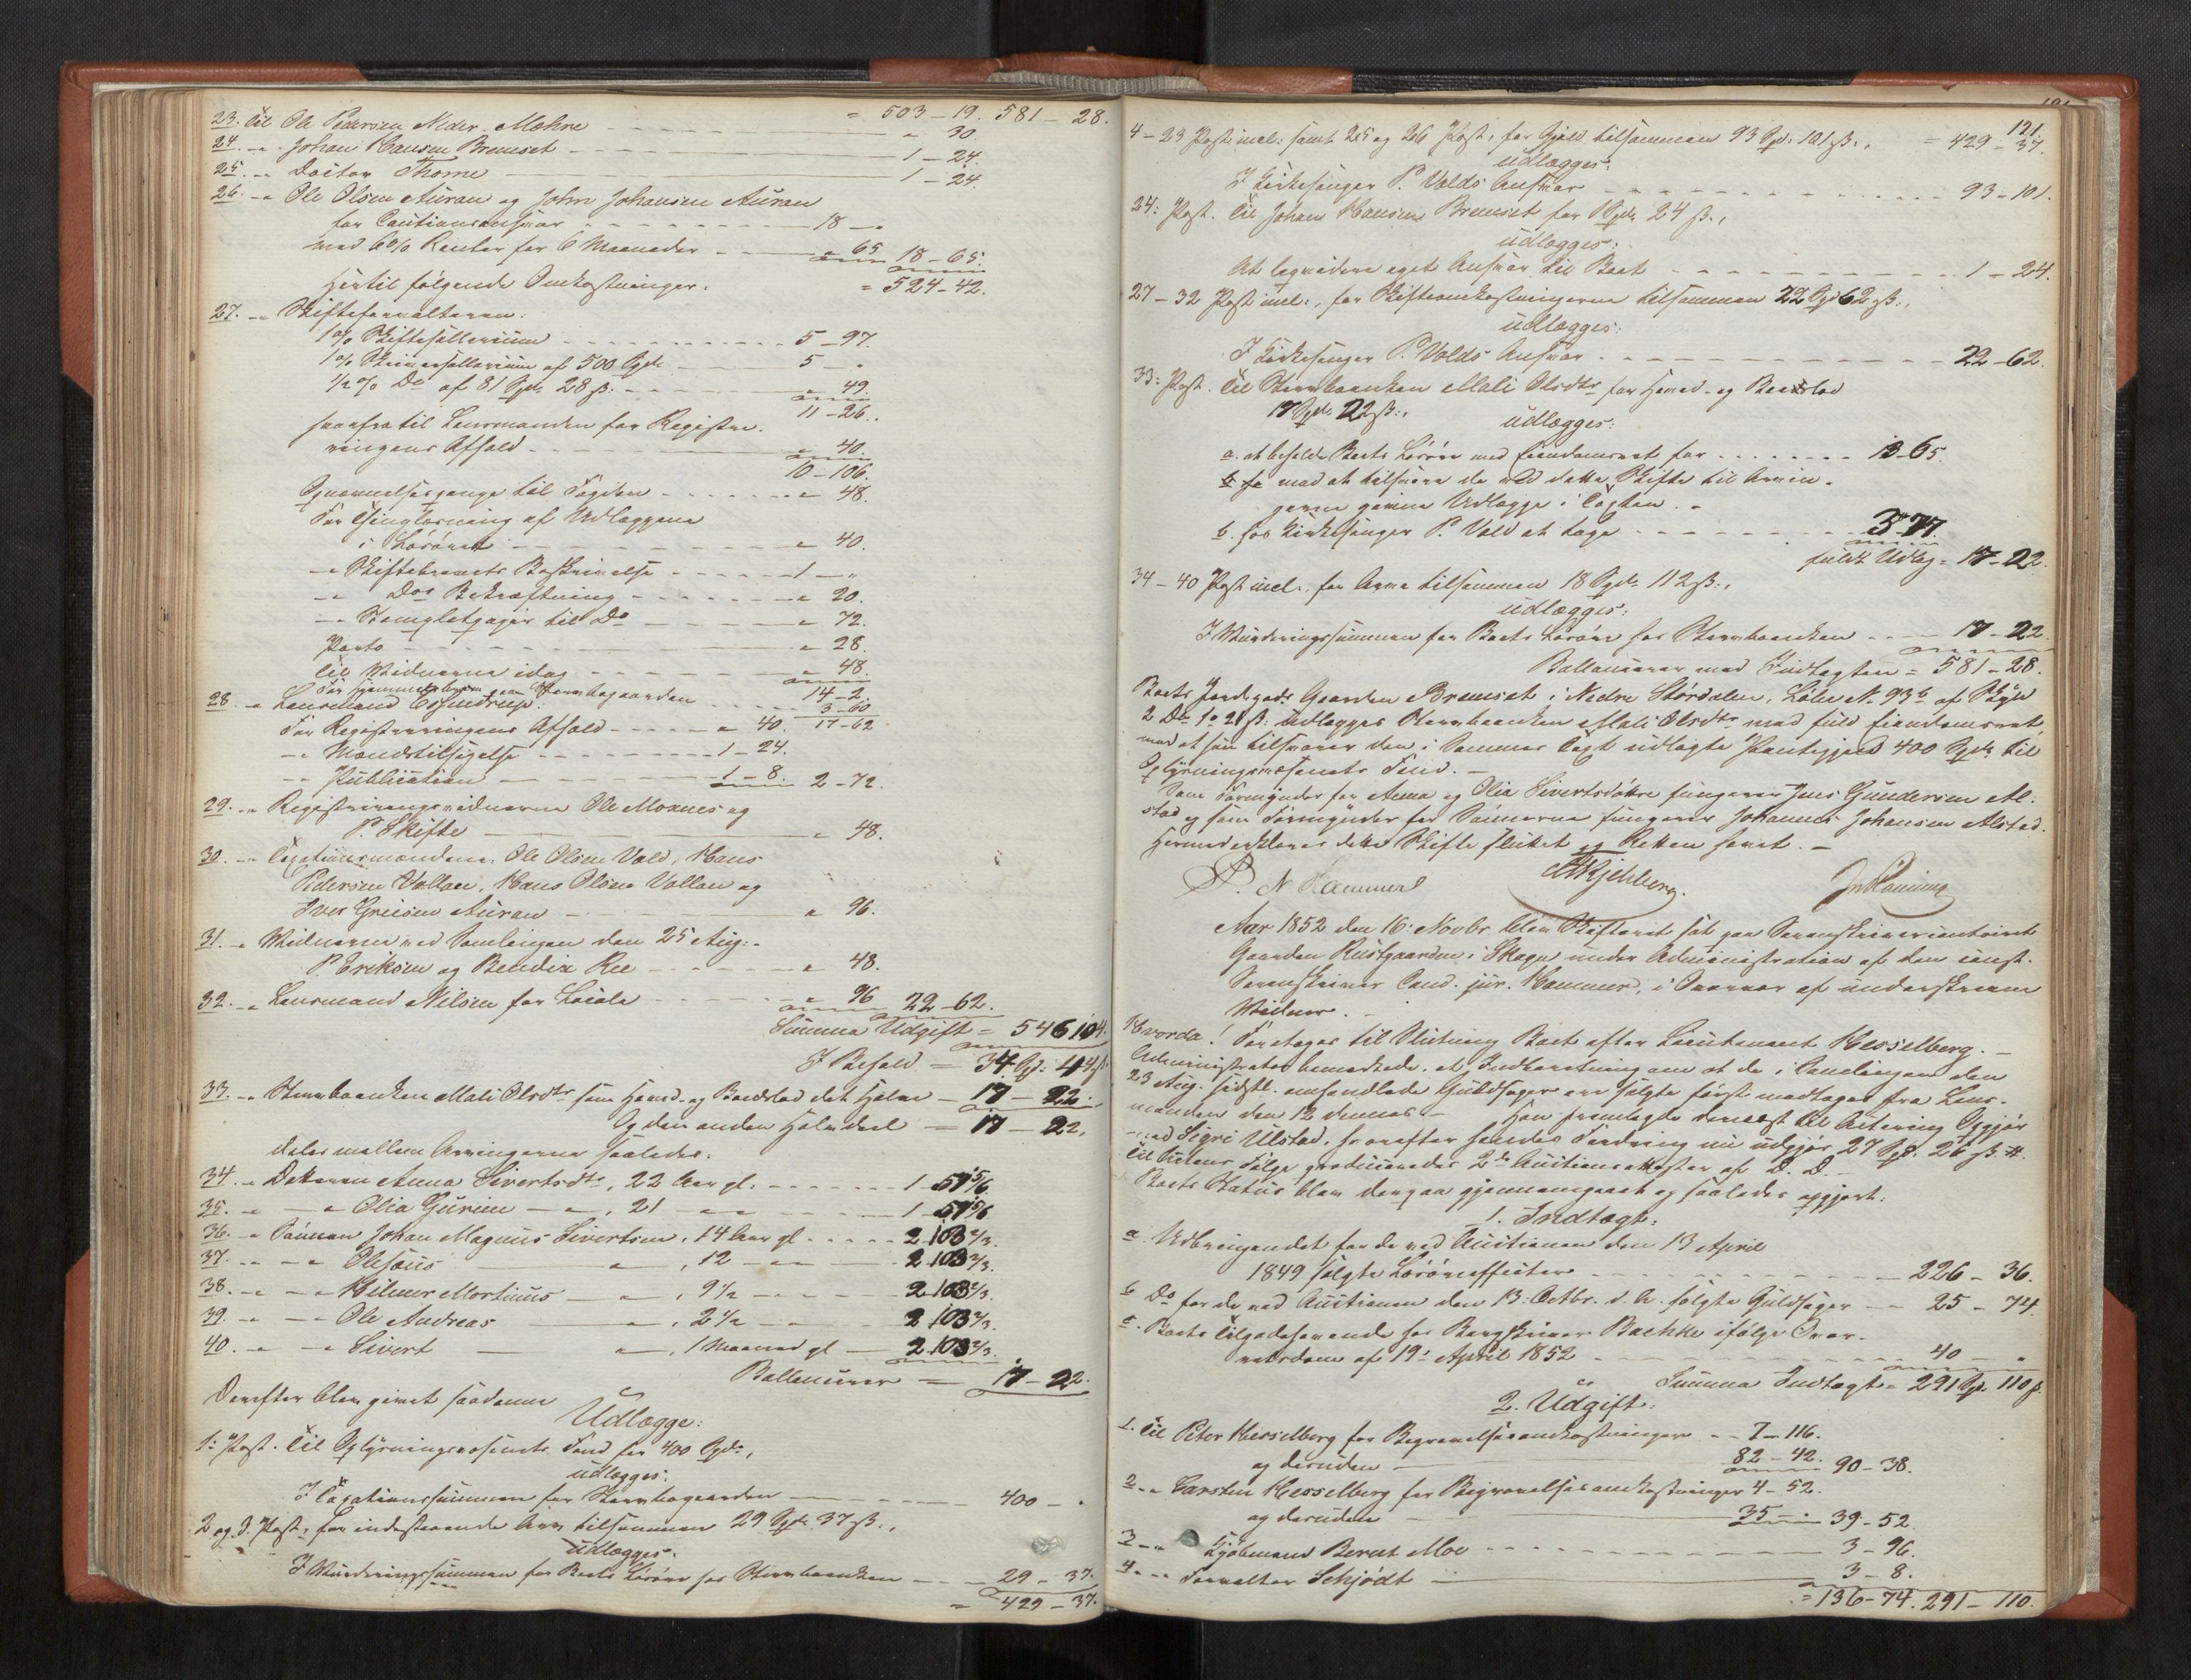 = 503 – 19. 581 – 28.
23. Til Ole Pedersen Neder Mæhre – „ 30.
24. – „ Johan Hansen Bremset – 1 – 24.
25. – „ Doctor Thome – 1 – 24.
26. – „ Ole Olsen Auran og John Johansen Auran
for Cautionsansvar – 18 – „
med 6% Renter for 6 Maaneder – „ 65 18 – 65.
Hertil følgende Omkostninger. = 524 – 42.
27. – „ Skifteforvalteren:
1% Skiftesallarium – 5 – 97.
1% Skriversallarium af 500 Spd. – 5 – „
1/2% Do af 81 Spd. 28 ß. – „ 49.
11 – 26.
hvorfra til Lensmanden for Registre-
ringens Afhold – „ 40.
10 – 106.
Opnævnelsespenge til Fogden – „ 48.
For Thinglæsning af Udlæggene
i Løsøret – „ 40.
– „ Skiftebrevets Beskrivelse – 1 – „
– „ Dos Bekræftning – „ 20.
– „ Stemplet papir til Do – „ 72.
Porto – „ 28.
Til Vidnerne idag – „ 48.
14 – 2.
For Hjemmelsbrev paa Stervbogaarden – 3 – 60
17 – 62
28. – „ Lensmand
For Registreringens Afhold – „ 40.
– „ Mændstilsigelse – 1 – 24.
– „ Publication – 1 – 8. 2 – 72.
29. – „ Registreringsvidnerne Ole Moxnes og
P. Skifte – „ 48.
30. – „ Taxationsmændene Ole Olsen Vold, Hans
Pedersen Vollan, Hans Olsen Vollan og
Iver Greisen Auran – „ 96.
31. – „ Vidnerne ved Samlingen den 25 Aug: –
P. Eriksen og Bendix Ree – „ 48.
32. – „ Lensmand Nilsen for Locale – „ 96 22 – 62.
Summa Udgift = 546 104.
I Behold = 34 Sp: 44 ß.
33. – „ Stervboenken Mali Olsdtr som Hoved- og Boeslod det Halve – 17 – 22.
Og den anden Halvdeel = 17 – 22.
deles mellem Arvingerne saaledes:
34. – „ Datteren Anna Sivertsdtr, 22 Aar gl. – 1 – 51 5/6
35. – „ – „ Olia Gurine – „ –, 21 – „ – 1 – 51 5/6
36. – „ Sønnen Johan Magnus Sivertsen, 14 Aar gl – 2 103 2/3.
37. – „ – „ Olesøus – „ –, 12 – „ – 2 103 2/3.
38. – „ – „ Hilmer Martinus – „ –, 9 1/2 – „ – 2 103 2/3.
39. – „ – „ Ole Andreas – „ –, 2 1/2 – „ – 2 103 2/3.
40. – „ – „ Sivert – „ –, 1 Maaned gl – 2 103 2/3.
Ballancerer = 17 – 22.
Derefter blev givet saadanne
Udlægge:
1: Post. Til Oplysningsvæsenets Fond for 400 Spd.,
udlægges:
I Taxationssummen for Stervbogaarden – 400 – „
2 og 3. Post, for indestaaende Arv tilsammen 29 Spd. 37 ß.,
udlægges:
I Vurderingssummen for Boets Løsøre hos Stervboenken – 29 – 37.
= 429 – 37.
121.
4 – 23 Post incl: samt 25 og 26 Post, for Gjeld tilsammen 93 Spd. 101 ß., = 429 – 37.
udlægges:
I Kirkesanger P. Volds Ansvar – 93 – 101.
24: Post. Til Johan Hansen Bremset for 1 Spd. 24 ß.,
udlægges:
At liqvidere eget Ansvar til Boet – 1 – 24.
27 – 32 Post incl:, for Skifteomkostningerne tilsammen 22 Spd 62 ß.,
udlægges:
I Kirkesanger P. Volds Ansvar – 22 – 62.
33: Post. Til Stervboenken Mali Olsdtr for Hoved- og Boeslod
17 Spd. 22 ß.,
udlægges:
a. at beholde Boets Løsøre med Eiendomsret for – 13 – 65.
mod at tilsvare de ved dette Skifte til Arvin-
gerne givne Udlægge i Løsøret. –
b. hos Kirkesanger P. Vold at tage – 3 – 77.
fuldt Udlæg = 17 – 22.
34 – 40 Post incl., for Arve tilsammen 18 Spd. 112 ß.,
udlægges:
I Vurderingssummen for Boets Løsøre hos Stervboenken – 17 – 22.
Ballancerer med Indtægten = 581 – 28.
Boets Jordegods Gaarden Bremset i Nedre Størdalen, Løbe No 93b af Skyld
2 Dr. 1 o. 21 ß. udlægges Stervboenken Mali Olsdtr med fuld Eiendomsret,
mod at hun tilsvarer den i Sammes Taxt udlagte Pantegjeld 400 Spd. til
Oplysningsvæsenets Fond. –
Som Formynder for Anna og Olia Sivertsdøttre fungerer Jens Gundersen Al-
stad og som Formynder for Sønnerne fungerer Johannes Johansen Alstad.
Hermed erklæres dette Skifte sluttet og Retten hævet. –
N Hammer
Aar 1852 den 16: Novbr. blev Skifteret sat paa Sorenskrivercontoiret
Gaarden Rustgaarden i Skogn under Administration af den const.
Sorenskriver Cand. jur. Hammer, i Overvær af underskrevne
Vidner. –
Hvorda! Foretages til Slutning Boet efter Lieutenant Hesselberg. –
Administrator bemærkede, at Indberetning om at de i Samlingen den
23 Aug. sidstl. omhandlede Guldsager ere solgte først modtages fra Lens-
manden den 12 dennes – Han fremlagde dernæst til Acterning Opgjør
med Sigri Ulstad, hvorefter hendes Fordring nu udgjør 27 Spd. 26 ß.
Til Actens Følge produceredes 2de Auctions Attester af D. D. –
Boets Status blev derpaa gjennemgaaet og saaledes opgjort:
1. Indtægt:
a. Udbringendet for de ved Auctionen den 13 April
1849 solgte Løsøreeffecter – 226 – 36.
b Do for de ved Auctionen den 13: Octbr. d. A. solgte Guldsager – 25 – 74.
c. Boets Tilgodehavende hos Bergskriver Bachke ifølge Over-
retsdom af 19: April 1852 – 40 – „
Summa Indtægt = 291 Sp. 110 ß.
2. Udgift:
1. Til Peter Hesselberg for Begravelsesomkostninger – 7 – 116.
og desuden – 82 – 42. 90 – 38.
2. – „ Carsten Hesselberg for Begravelsesomkostninger 4 – 52.
og desuden – 35 – „ 39 – 52.
3 – „ Kjøbmand Bernt Moe – 3 – 96.
4. – „ Forvalter Schjødt – 3 – 8.
= 136 – 74. 291 – 110.